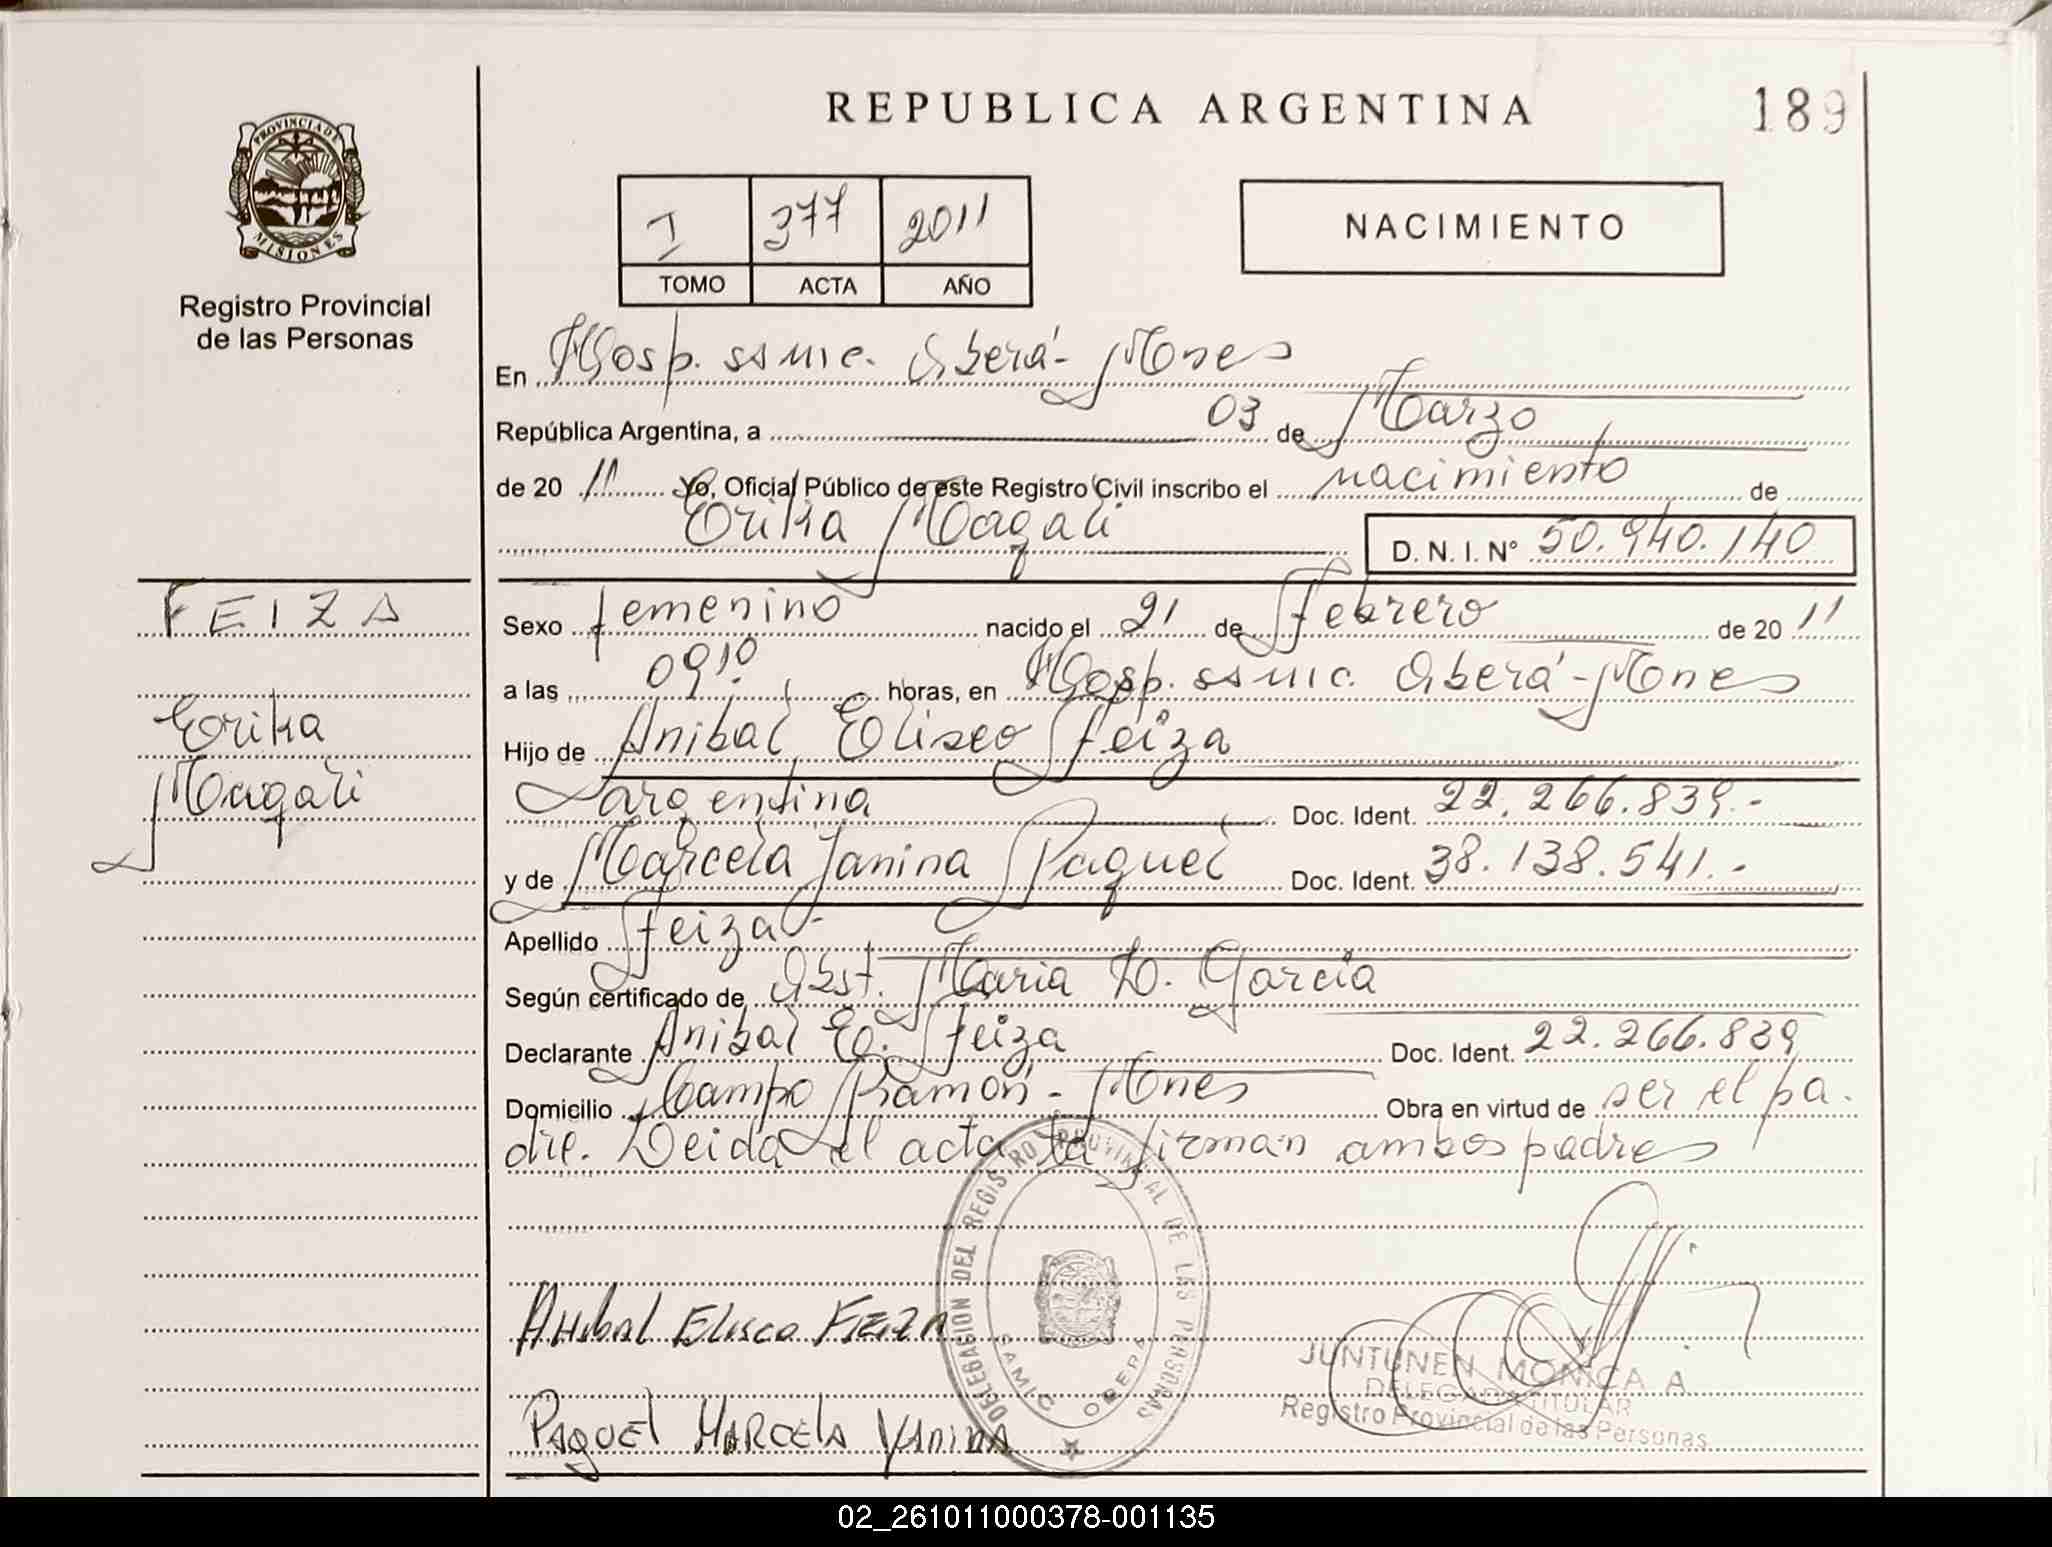 REPUBLICA ARGENTINA
189
PROVINCIA DE
MISIONES
Registro Provincial
de las Personas
I 377 2011
TOMO ACTA AÑO
NACIMIENTO
En Hosp. ssmic. Oberá - Mnes
República Argentina, a 03 de Marzo
de 20 11 Yo, Oficial Público de este Registro Civil inscribo el nacimiento de
Erika Magali D. N. I. N° 50.940.140
FEIZA
Erika
Magali
Sexo femenino nacido el 21 de Febrero de 20 11
a las 09¹⁰ horas, en Hosp. ssmic. Oberá - Mnes
Hijo de Anibal Eliseo Feiza
argentina Doc. Ident. 22.266.839.-
y de Marcela Janina Paquel Doc. Ident. 38.138.541.-
Apellido Feiza -
Según certificado de Obst. Maria D. Garcia
Declarante Anibal E. Feiza Doc. Ident. 22.266.839
Domicilio Campo Ramón - Mnes Obra en virtud de ser el pa.
dre. Leida el acta la firman ambos padres
DELEGACION DEL REGISTRO PROVINCIAL DE LAS PERSONAS
SAMIC OBERA
Anibal Eliseo Feiza
Paquel Marcela Yanina
JUNTUNEN MONICA A
DELEGADA TITULAR
Registro Provincial de las Personas
02_261011000378-001135